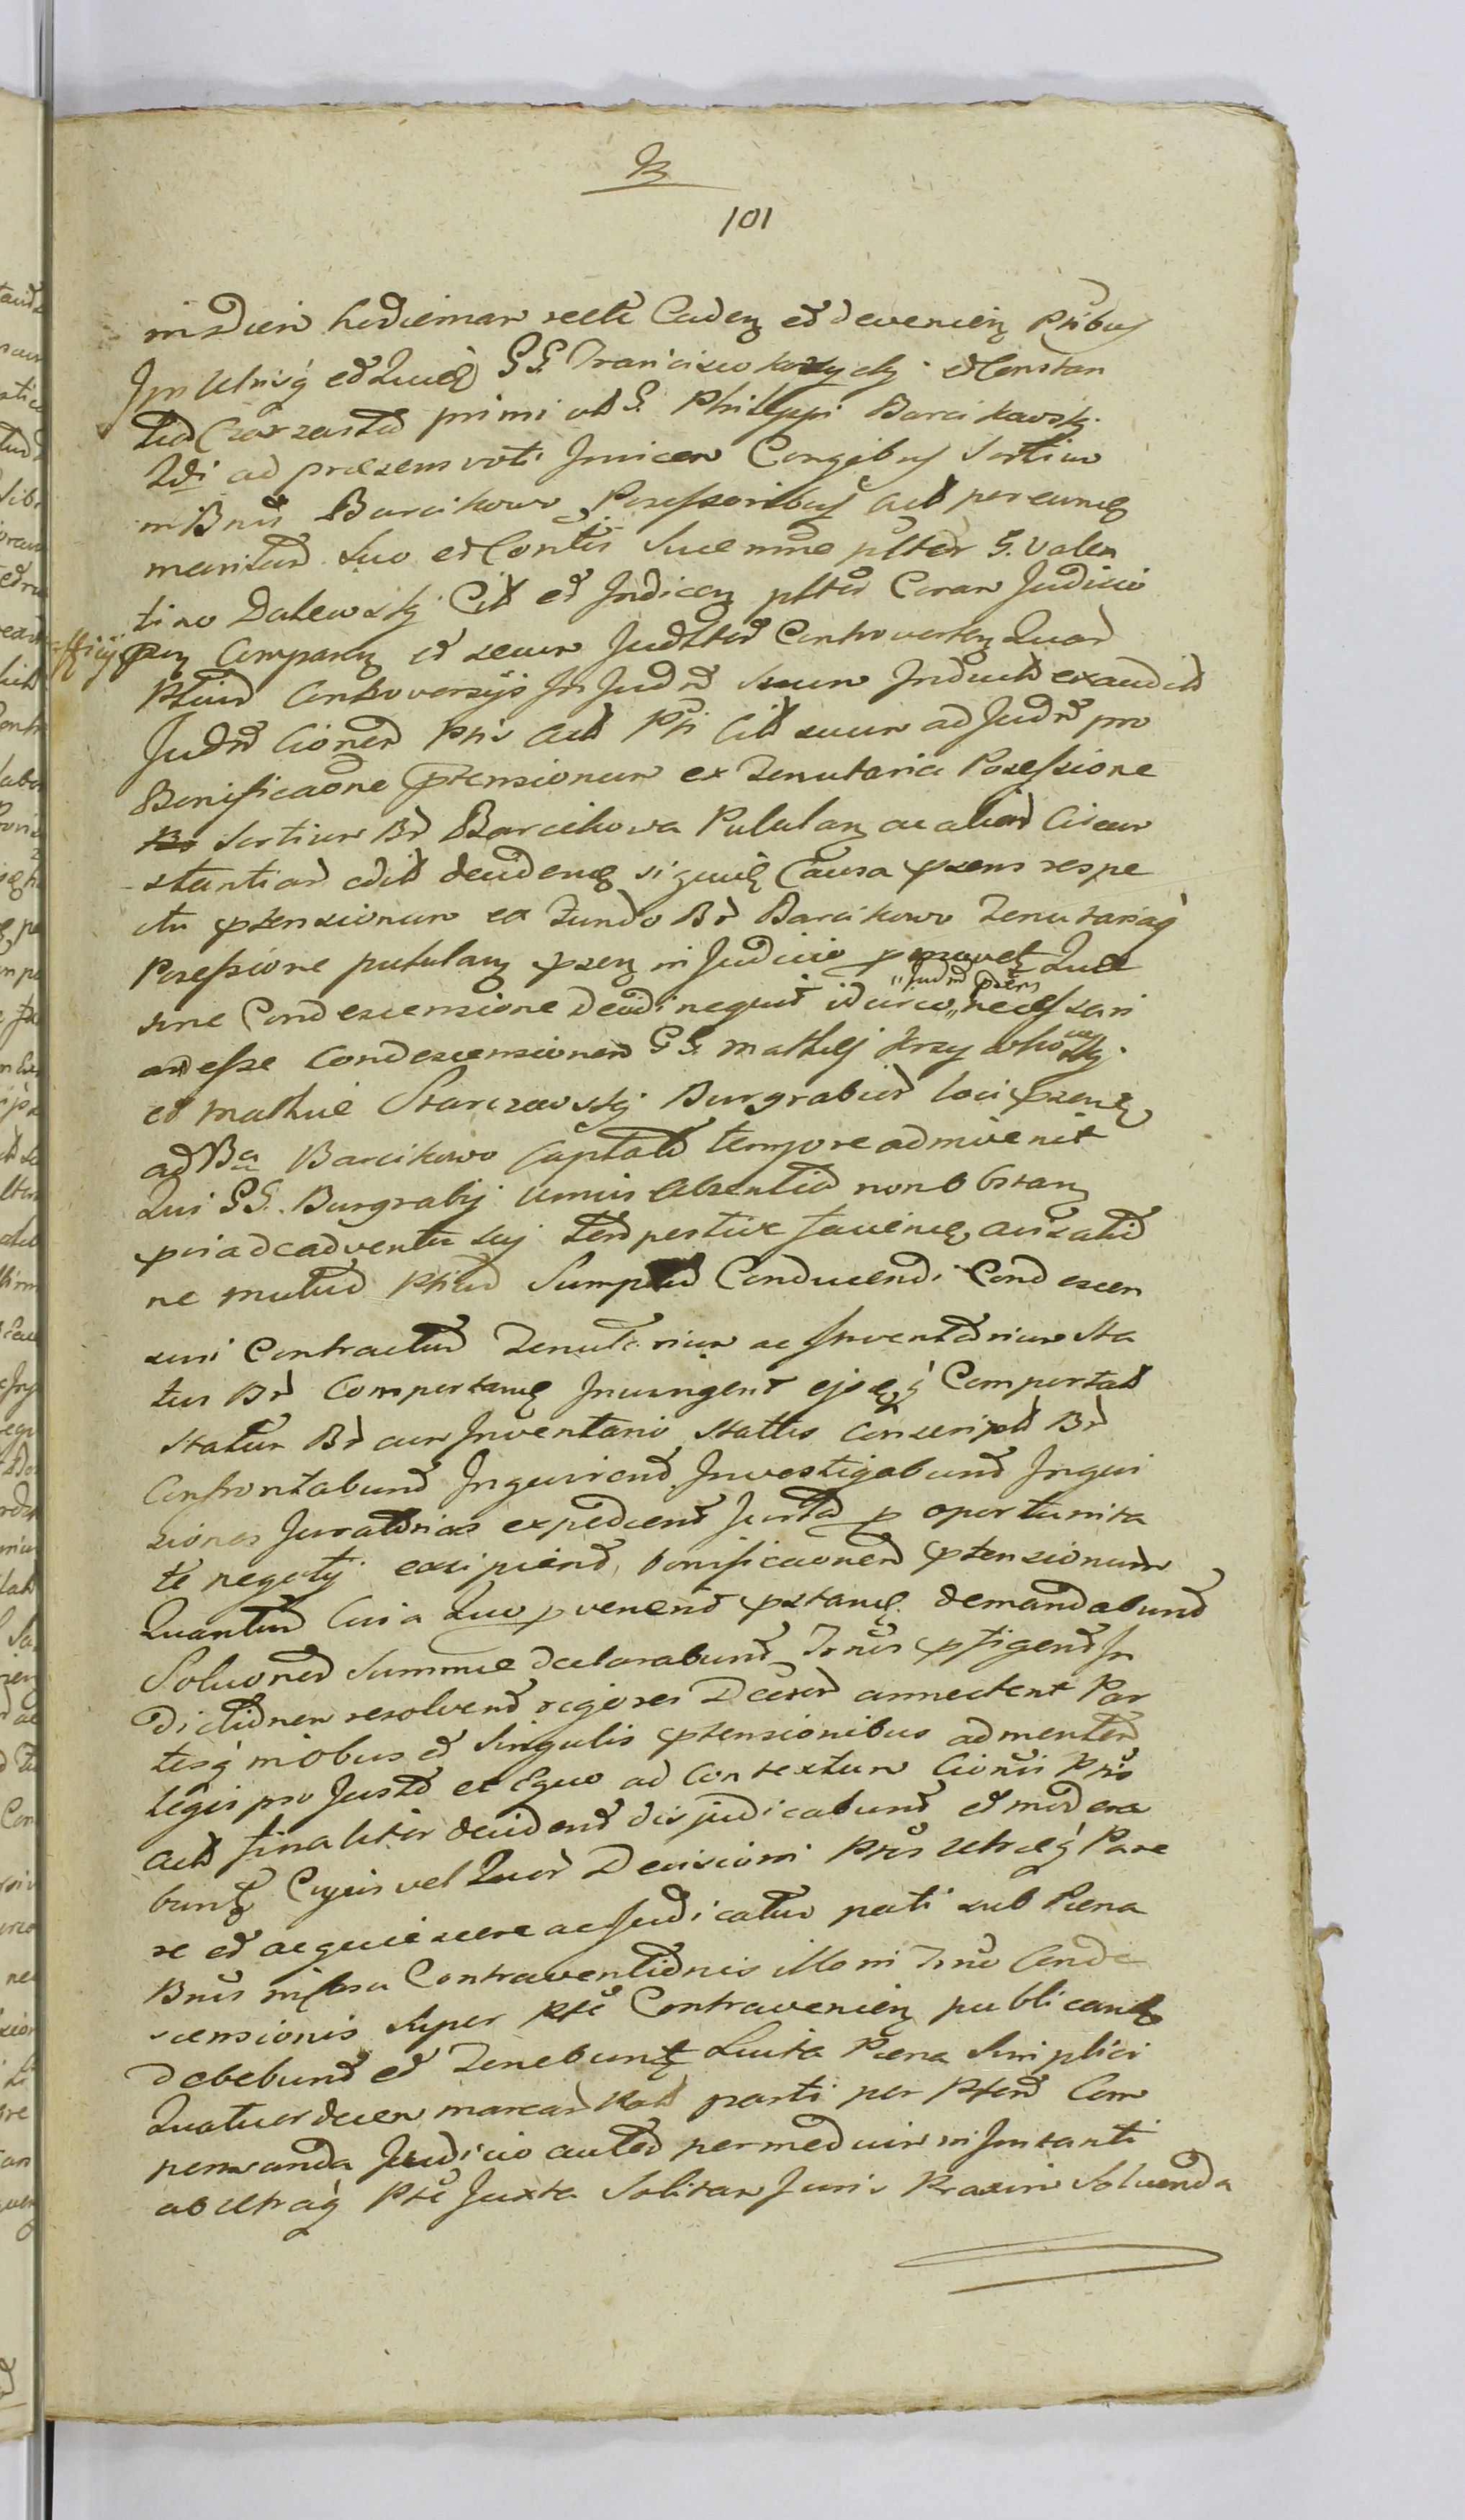 B
101
in diem hodiernam recte Caden et devenien Ptibus
In Utrisq et Quid GG. Francisco et Constan
tia primi olt G. Philippi Barcikowsk.
2di ad præsens voti Invicem Congibus Sortium
in Bnis Barcikowo Possessoribus Act per eund
maritum Suo et Contis Sue nne pltter G. Valen
tino Dalewsky Cit et Indicen pltter Coram Judicio
officij pn Comparen et secum Juditter Controverten Quar
Ptium Controversijs In Judm Suum Inductis exauditis
Judm Cionem Ptis Act Pti Cit suum ad Judm pro
Bonificaone ptensionum ex Tenutaria Possessione
Sortium Br Barcikowa Pululan ac aliar Circum
stantiar edit decidend si quid Causa psens respe
ctu ptensionum ex Fundo Br Barcikowo Tenutariaq
Possessione pululan psen in Judicio promovet Quæ
sine Condescensione decidi nequit idcirco "Judm psens "necessari
am esse Condescensionem GG. Mathej
et Mathie Starczewsky Burgrabior loci psent
ad Ba Barcikowo Captato tempore admvenit
Qui GG. Burgrabij unius absentia non obstan
pria de adventu suj tempestive faciend avisatio
ne mutuo Ptium Sumptu Conducendi Condescen
suri Contractum Tenutorium ac Inventarium sta
tus Br Comportand Injungent ejsqq Comportat
statum Br cum Inventario stattis Conscript Br
Confrontabunt Inquirend Investigabunt Inqui
siones Juratorias expedient Juxta p oportunita
te negotij excipient, bonificaonem ptensionum
Quantum Cuia Quo pvenend pstand demandabunt
Soluonem Summe declarabunt Trnos pfigent In
dictionem resolvend rigores Decisor annectent Par
tesq in obus et Singulis ptensionibus ad mentem
legis pro Justo et Equo ad Contextum Cionis Ptis
Act finaliter decident disjudicabunt et modera
bunt Cujus vel Quor Decisioni Ptes Utræq Pare
re et acquiescere ac Judicatum pati sub Pœna
Bnis infra Contraventionis illo in Trno Conde
scensionis super Pte Contravenien publicand
Debebunt et Tenebunt Luita Pœna Simplici
Quatuordecem marcar Pol parti per Ptem Com
pensanda Judicio autem per medium in Instanti
ab Utraq Pte Juxta Solitam Juris Praxim Soluenda